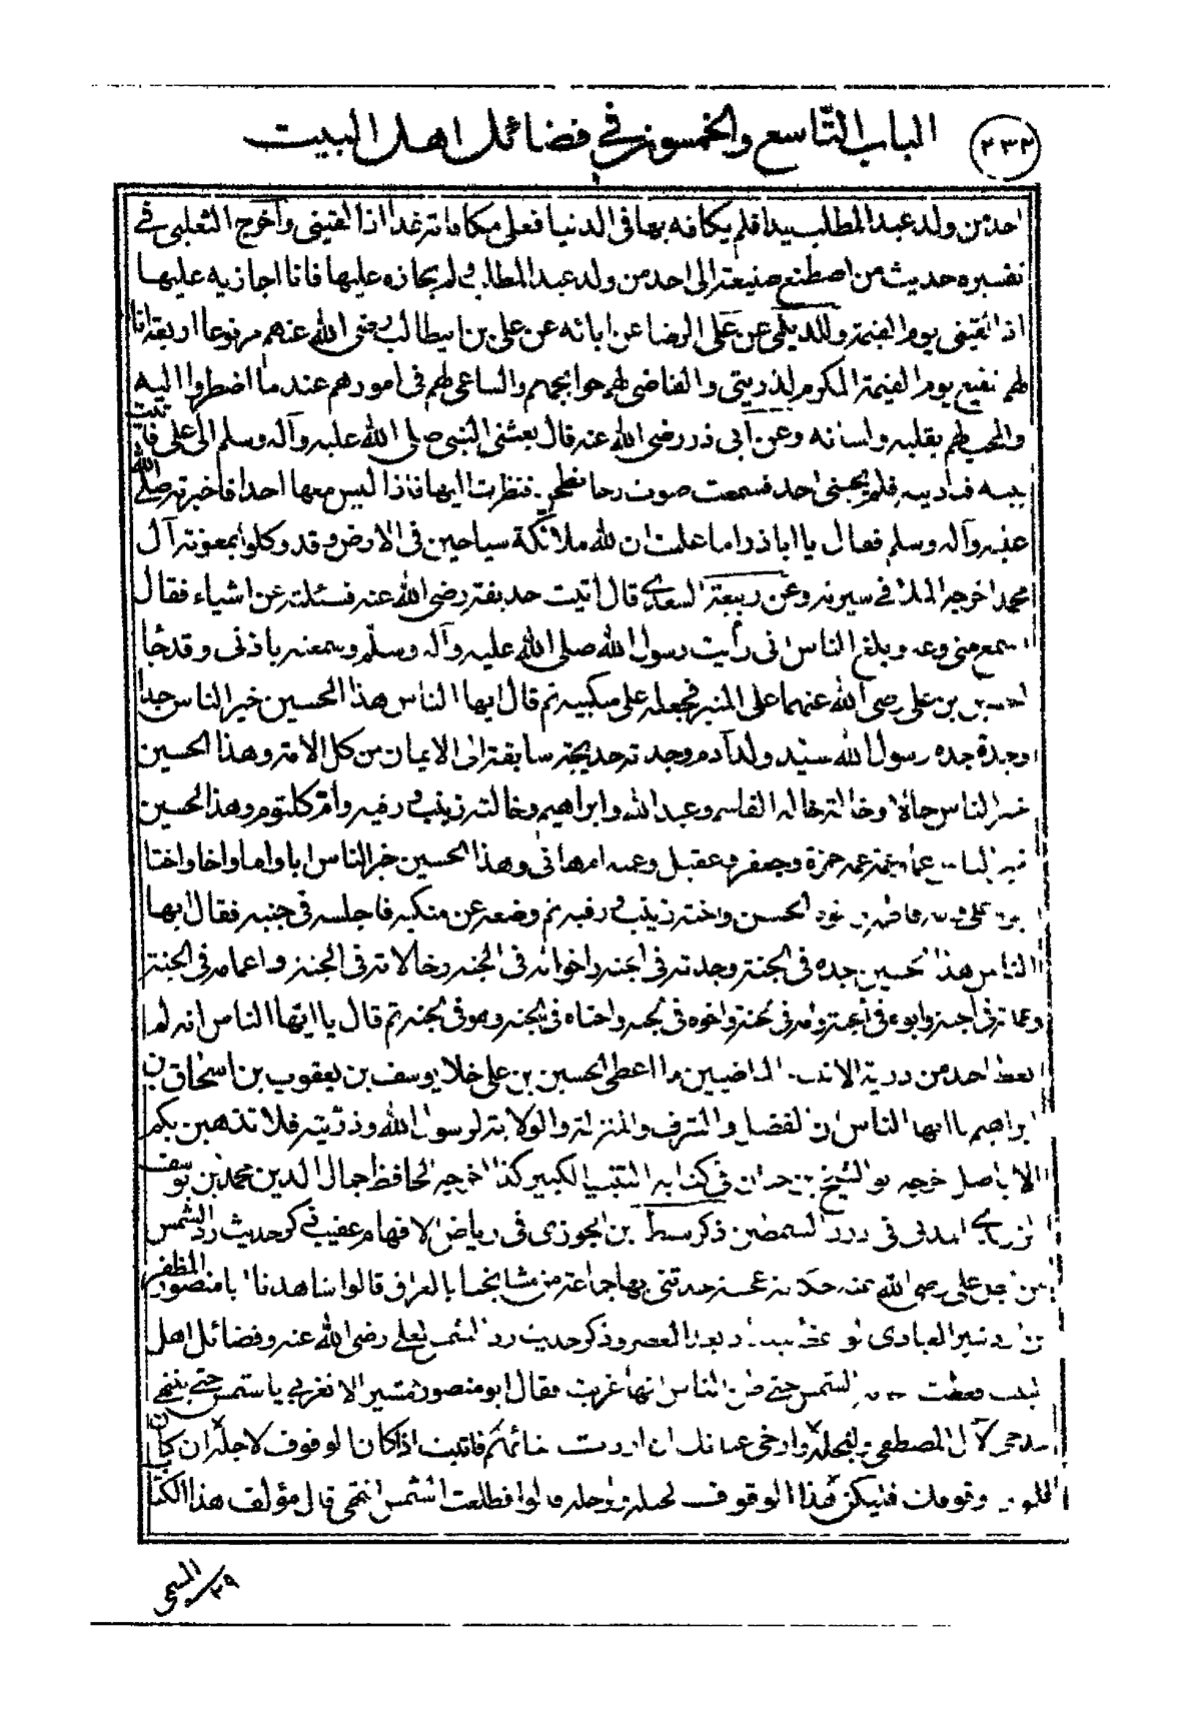 ٢٣٢ الباب التاسع والخمسون في فضائل اهل البيت
احد من ولد عبد المطلب يدا فلم يكافه بها فى الدنيا فعلى مكافاته غدا اذا لقينى واخرج الثعلبى فى
تفسيره حديث من اصطنع صنيعة الى احد من ولد عبد المطلب و لم يجازه عليها فانا اجازيه عليها
اذا لقينى يوم القيمة وللديلمى عن على الرضا عن ابائه عن على بن ابيطالب رضى الله عنهم مرفوعا اربعة انا
لهم شفيع يوم القيمة المكرم لذريتى والقاضى لهم حوائجهم والساعى لهم فى امورهم عند ما اضطروا اليه
والمحب لهم بقلبه ولسانه وعن ابى ذر رضى الله عنه قال بعثنى النبى صلى الله عليه وآله وسلم الى على فاتيت
بيته فناديته فلم يجبنى احد فسمعت صوت رحا تطحن فنظرت اليها فاذا ليس معها احد فاخبرته صلى الله
عليه وآله وسلم فقال يا اباذر اما علمت ان لله ملائكة سياحين فى الارض وقد وكلوا بمعونة آل
محمد اخرجه الملا فى سيرته وعن ربيعة السعدى قال اتيت حذيفة رضى الله عنه فسئلته عن اشياء فقال
اسمع منى وعه وبلغ الناس انى رأيت رسول الله صلى الله عليه وآله وسلم وسمعته باذنى وقد جا
الحسين بن على رضى الله عنهما على المنبر فجعله على منكبيه ثم قال ايها الناس هذا الحسين خير الناس جدا
وجدة جده رسول الله سيد ولد آدم وجدته خديجة سابقة الى الايمان من كل الامة وهذا الحسين
خير الناس خالا وخالة خاله القاسم وعبد الله وابراهيم وخالته زينب و رقية وام كلثوم وهذا الحسين
خير الناس عما وعمة عمه حمزة وجعفر وعقيل وعمته ام هانى وهذا الحسين خير الناس ابا واما واخا واختا
ابوه على وامه فاطمة واخوه الحسن واخته زينب و رقية ثم وضعه عن منكبه فاجلسه فى جنبه فقال ايها
الناس هذا الحسين جده فى الجنة وجدته فى الجنة واخواله فى الجنة وخالاته فى الجنة واعمامه فى الجنة
وعماته فى الجنة وابوه فى الجنة وامه فى الجنة واخوه فى الجنة واختاه فى الجنة وهو فى الجنة ثم قال يا ايها الناس انه لم
يعط احد من ذرية الانبياء الماضيين ما اعطى الحسين بن على خلا يوسف بن يعقوب بن اسحاق بن
ابراهيم يا ايها الناس ان الفضل والشرف والمنزلة والولاية لرسول الله وذريته فلا تذهبن بكم
الاباطيل خرجه ابو الشيخ بن حبان فى كتابه التنبيه الكبير كذا اخرجه الحافظ جمال الدين محمد بن يوسف
الزرندى المدنى فى درر السمطين ذكر سبط بن الجوزى فى رياض الافهام عقيب ذكر حديث رد الشمس
من اجل على رضى الله عنه حكاية عجيبة حدثنى بها جماعة من مشايخنا بالعراق قالوا شاهدنا ابا منصور المظفر
بن اردشير العبادى الواعظ بعد العصر وذكر حديث رد الشمس لعلى رضى الله عنه وفضائل اهل
البيت فغطت الشمس حتى ظن الناس انها غربت فقال ابو منصور مشيرا لا تغربى يا شمس حتى ينتهى
مدحى لآل المصطفى ولنجله واثنى عنانك ان اردت ثنائهم انسيت اذ كان الوقوف لاجله ان كان
للمولى وقوفك فليكن هذا الوقوف لخيله ولرجله قالوا فطلعت الشمس انتهى قال مؤلف هذا الكتاب
٢٩/ السمى